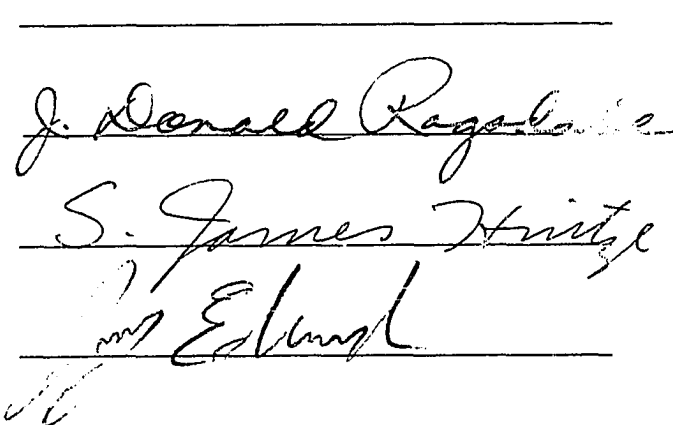 J. Donald Ragsdale
S. James Hintze